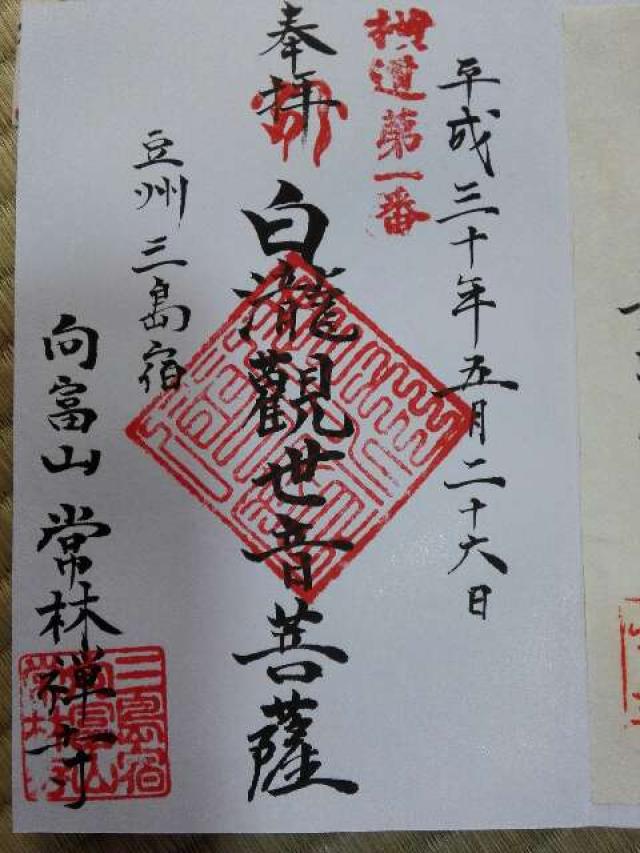 平成三十年五月二十六日
横道第一番
奉拝
白瀧觀世音菩薩
豆州三島宿
向富山常林禅寺
三島宿
向富山
常林寺